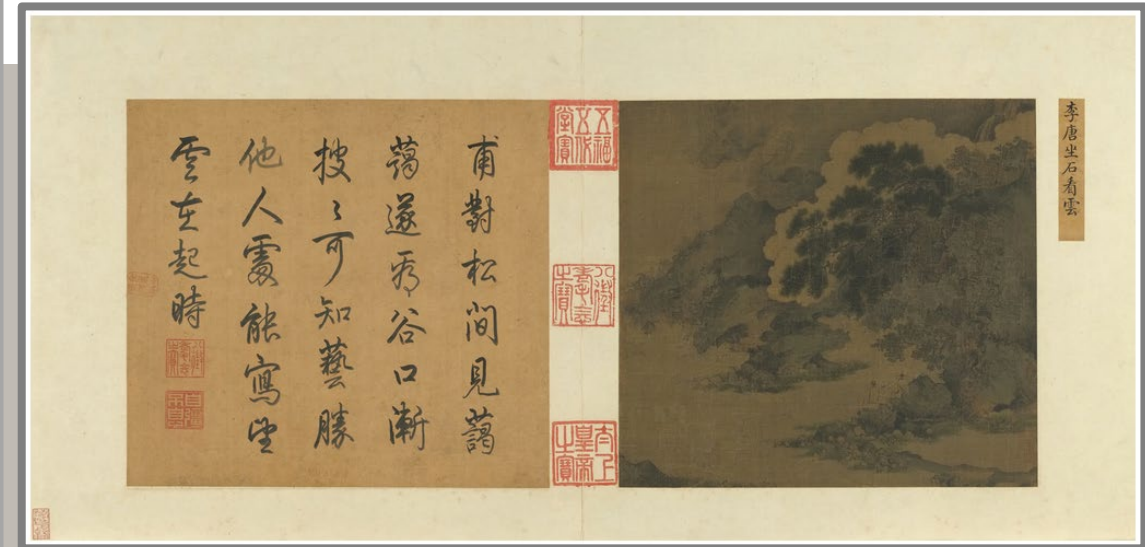 李唐坐石看雲
五福五代堂寶
八徵耄念之寶
太上皇帝之寶
甫對松間見藹
藹遂看谷口漸
披〻可知藝勝
他人處能寫坐
雲在起時
八徵耄念之寶
自彊不息